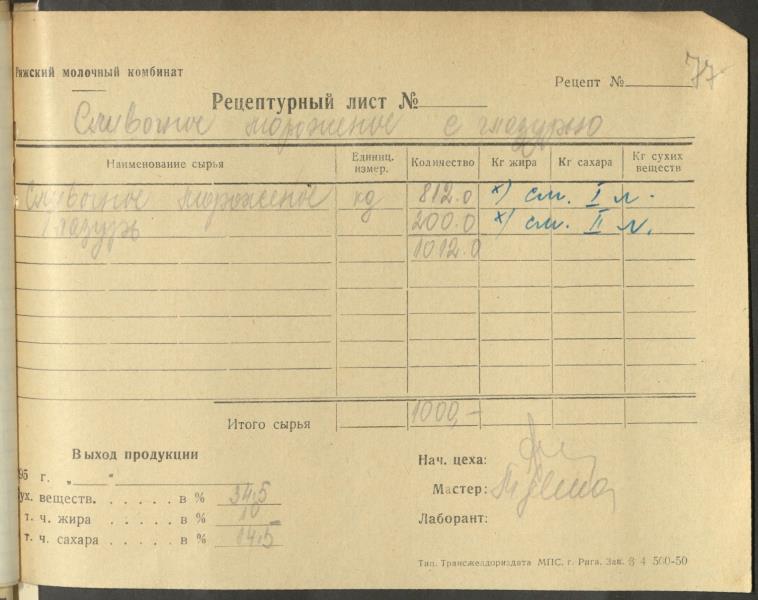 Рижский молочный комбинат
77
Рецепт №
Рецептурный лист №
Сливочное мороженое с глазурью
Наименование сырья Единиц. измер. Количество Кг жира Кг сахара Кг сухих веществ
Сливочное мороженое кg 812.0 х) см. I л.
Глазурь 200.0 х) см. II л.
1012.0
Итого сырья 1000,-
Выход продукции
95 г. „ “
ух. веществ. . . . . . в % 34,5
т. ч. жира . . . . . в % 10
т. ч. сахара . . . . . в % 14,5
Нач. цеха:
Мастер:
Лаборант:
Тип. Трансжелдориздата МПС, г. Рига. Зак. 3 4 500-50